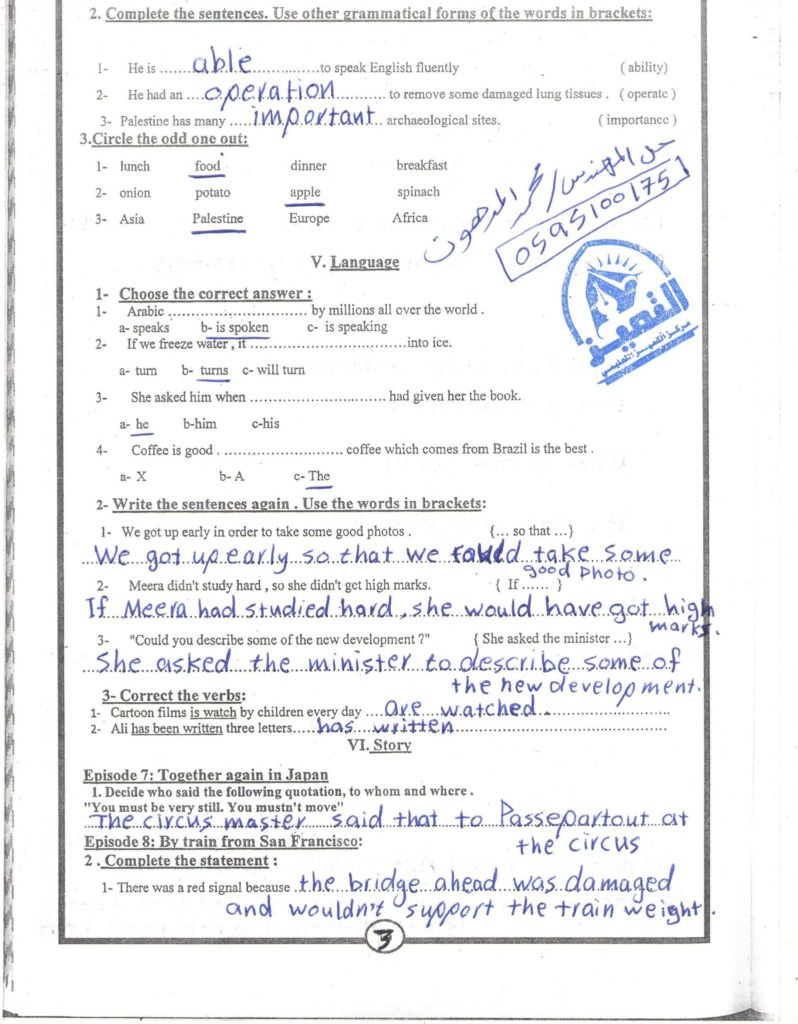 2. Complete the sentences. Use other grammatical forms of the words in brackets:
1- He is ......able..................to speak English fluently ( ability)
2- He had an ....operation............ to remove some damaged lung tissues . ( operate )
3- Palestine has many .....important.. archaeological sites. ( importance )
3.Circle the odd one out:
1- lunch food dinner breakfast
2- onion potato apple spinach
3- Asia Palestine Europe Africa
حل المهندس / محمد المدهون
0595100175
التميز
مركز التميز التعليمي
V. Language
1- Choose the correct answer :
1- Arabic ................................ by millions all over the world .
a- speaks b- is spoken c- is speaking
2- If we freeze water , it ....................................into ice.
a- turn b- turns c- will turn
3- She asked him when ............................... had given her the book.
a- he b-him c-his
4- Coffee is good . ........................... coffee which comes from Brazil is the best .
a- X b- A c- The
2- Write the sentences again . Use the words in brackets:
1- We got up early in order to take some good photos . {... so that ...}
We got up early so that we could take some
good photo.
2- Meera didn't study hard , so she didn't get high marks. { If ...... }
If Meera had studied hard, she would have got high
marks.
3- "Could you describe some of the new development ?" { She asked the minister ...}
She asked the minister to describe some of
the new development.
3- Correct the verbs:
1- Cartoon films is watch by children every day ....are watched.
2- Ali has been written three letters.....has written
VI. Story
Episode 7: Together again in Japan
1. Decide who said the following quotation, to whom and where .
"You must be very still. You mustn't move"
The circus master said that to Passepartout at
the circus
Episode 8: By train from San Francisco:
2 . Complete the statement :
1- There was a red signal because ..the bridge ahead was damaged
and wouldn't support the train weight.
3